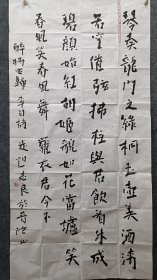 琴奏龍門之綠桐玉壺美酒清
若空催弦拂柱與君飲看朱成
碧顏始紅胡姬貌如花當壚笑
春風笑春風舞羅衣君今不
醉將安歸 李白詩